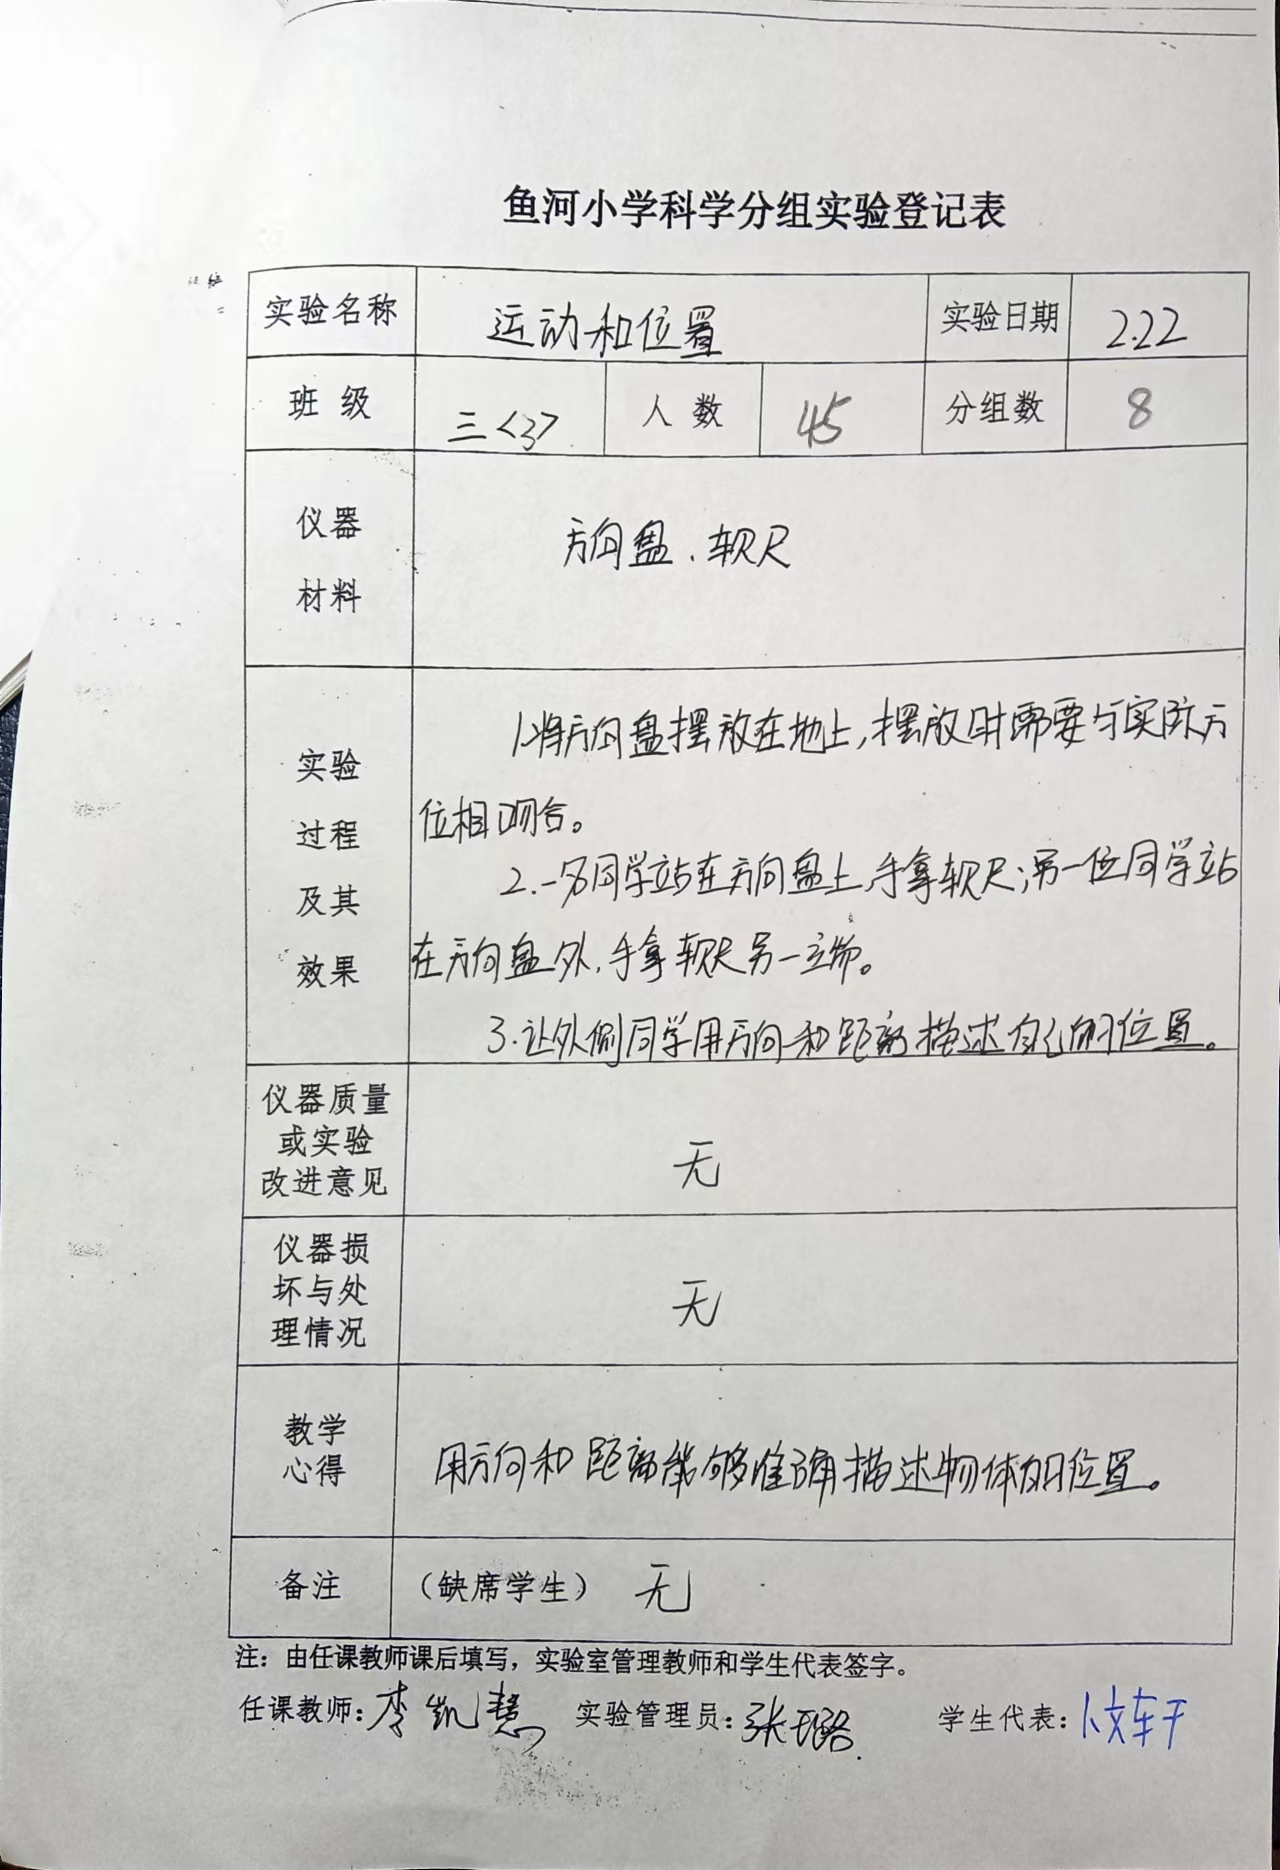 鱼河小学科学分组实验登记表
实验名称 运动和位置 实验日期 2.22
班级 三<3> 人数 45 分组数 8
仪器
材料
方向盘、软尺
实验
过程
及其
效果
1.将方向盘摆放在地上,摆放时需要与实际方
位相吻合。
2.一名同学站在方向盘上,手拿软尺;另一位同学站
在方向盘外,手拿软尺另一端。
3.让外侧同学用方向和距离描述自己的位置。
仪器质量
或实验
改进意见
无
仪器损
坏与处
理情况
无
教学
心得
用方向和距离能够准确描述物体的位置。
备注 (缺席学生) 无
注:由任课教师课后填写,实验室管理教师和学生代表签字。
任课教师:李凯慧 实验管理员:张璐 学生代表: